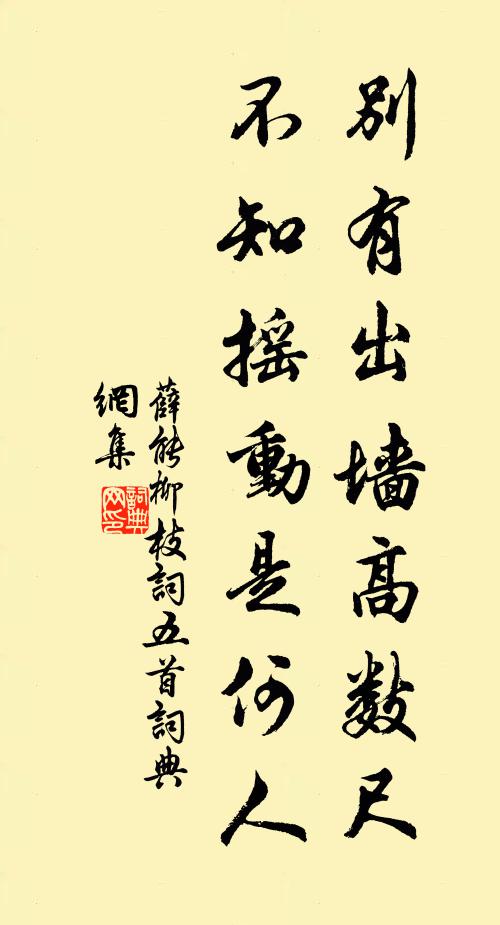 别有出墙高数尺
不知摇動是何人
薛能柳枝詞五首詞典
網集
詞典
网印